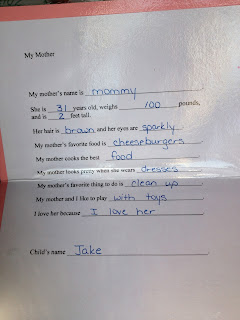 My Mother
My mother's name is mommy
She is 31 years old, weighs 100 pounds,
and is 2 feet tall.
Her hair is brown and her eyes are sparkly
My mother's favorite food is cheeseburgers
My mother cooks the best food
My mother looks pretty when she wears dresses
My mother's favorite thing to do is clean up
My mother and I like to play with toys
I love her because I love her
Child's name Jake